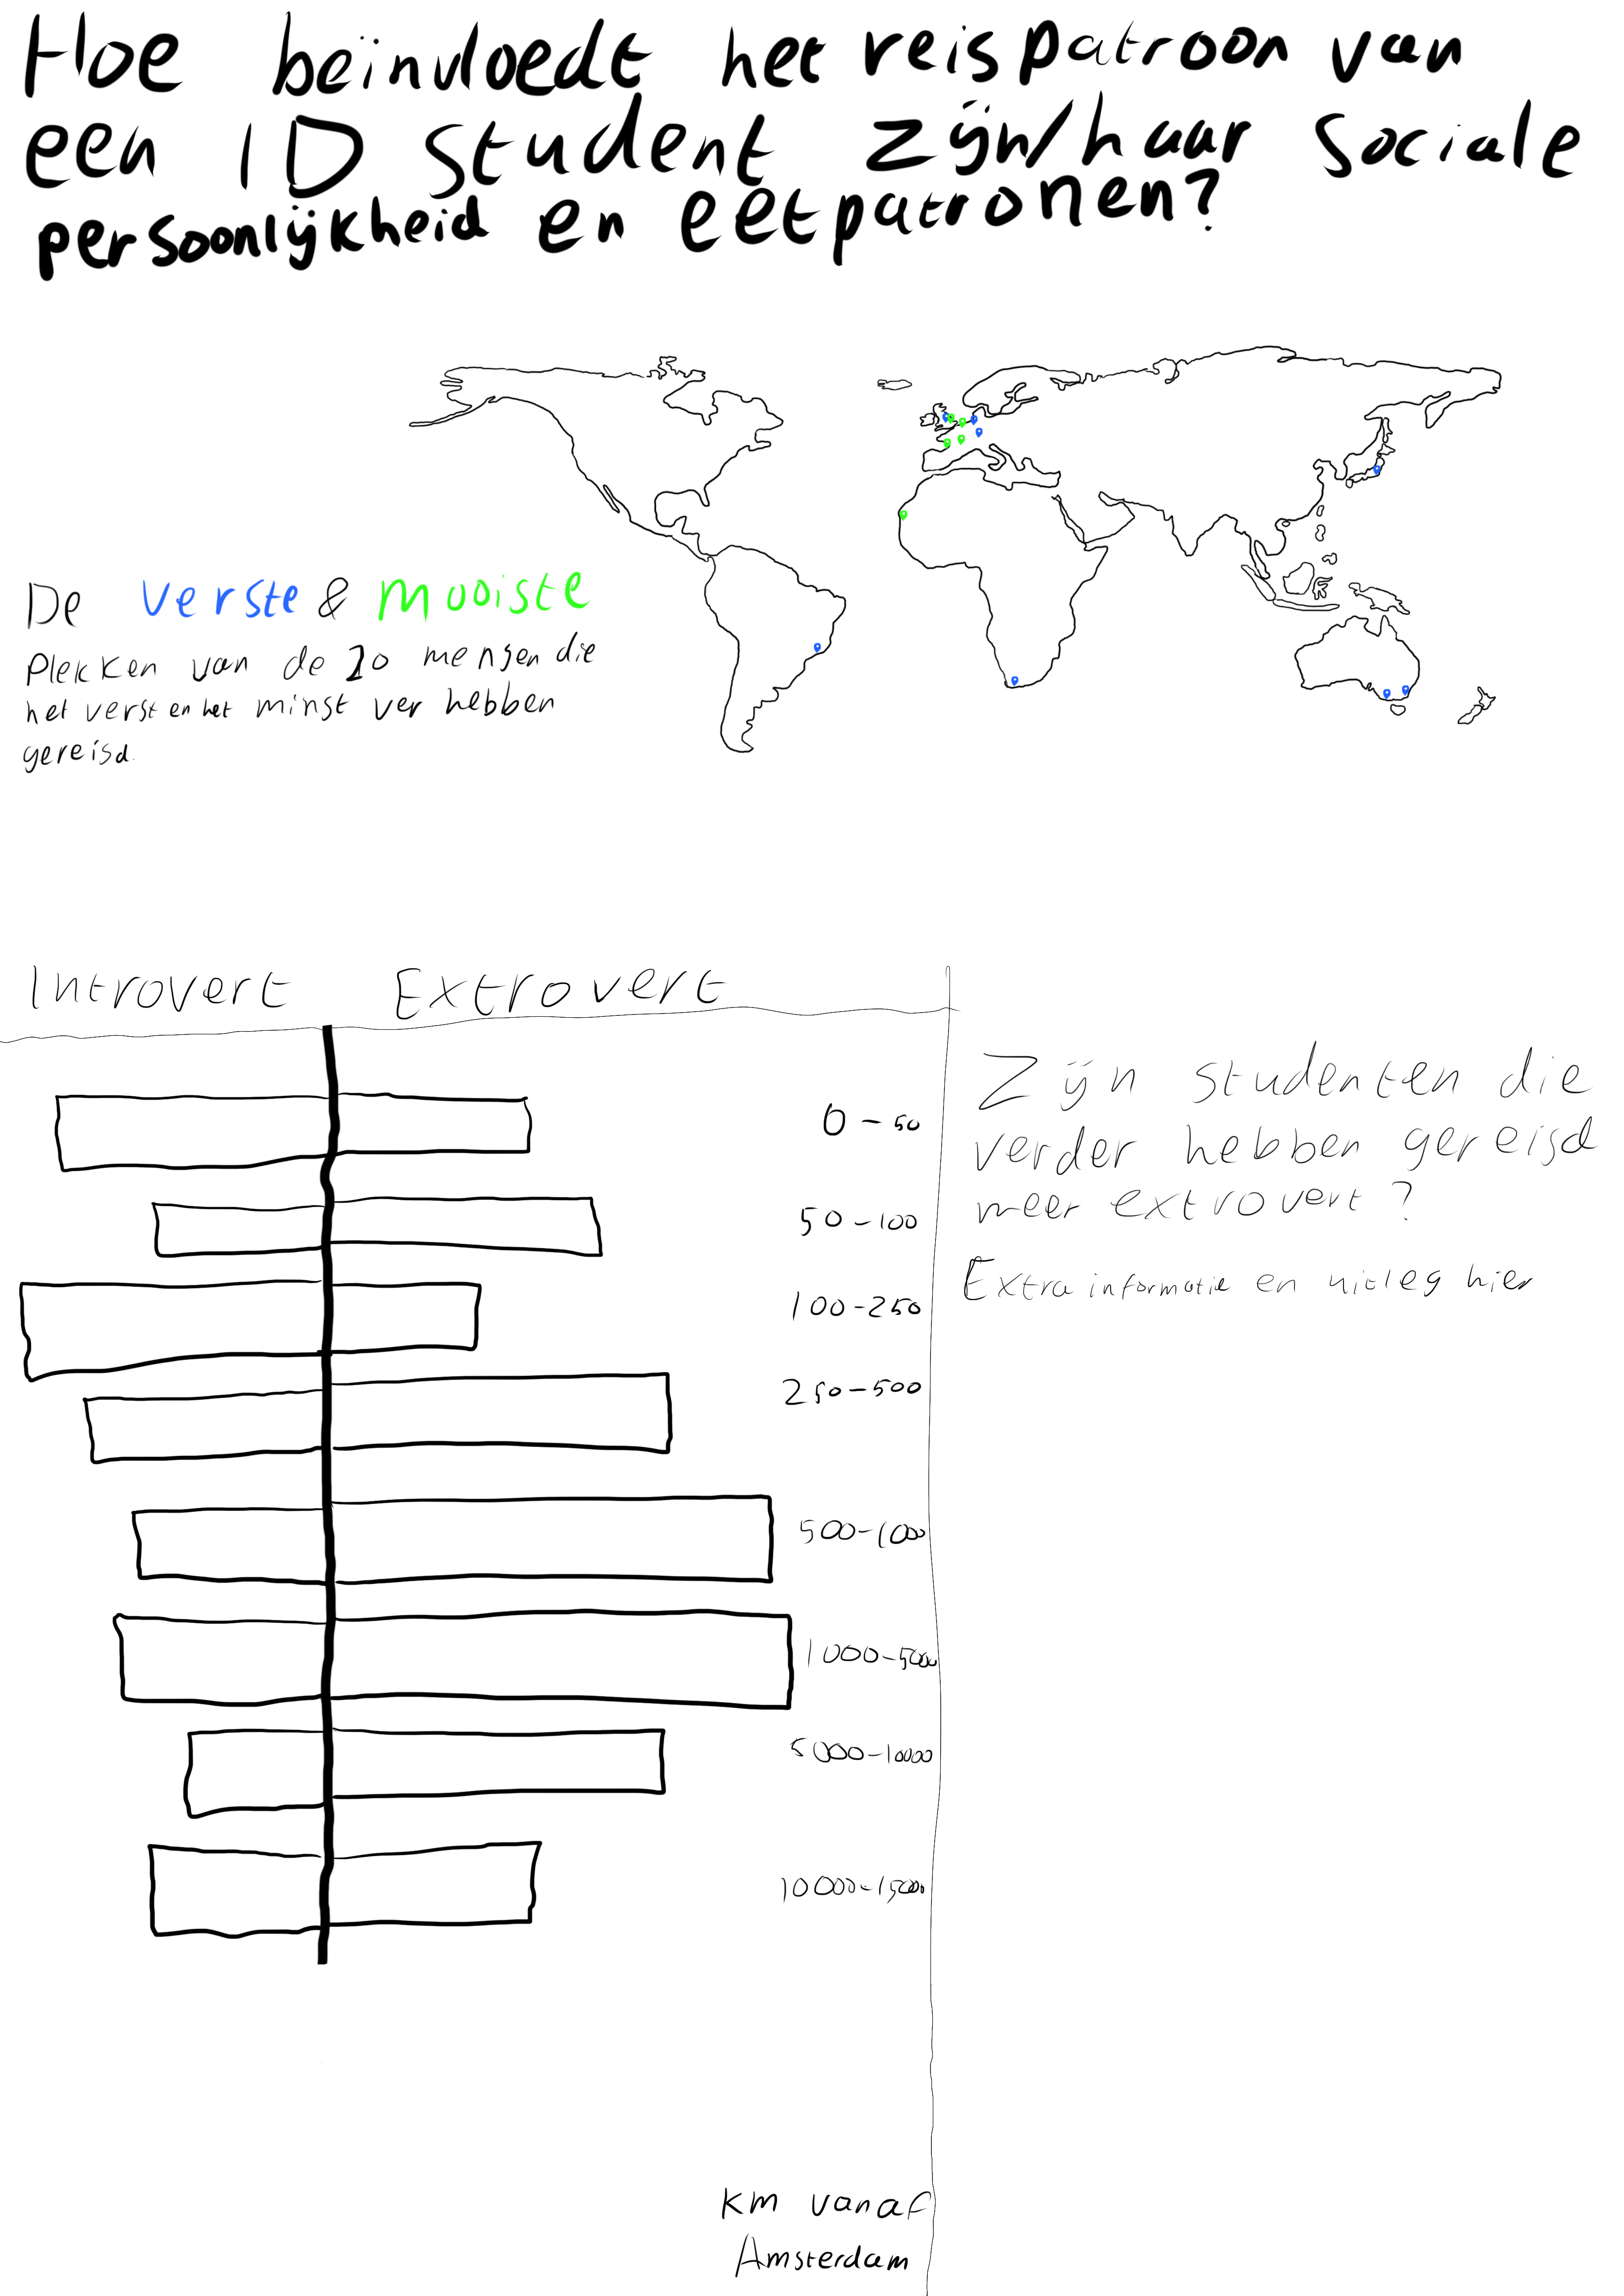 Hoe beïnvloedt het reispatroon van
een ID student zijn/haar sociale
persoonlijkheid en eetpatronen?
De verste & mooiste
Plekken van de 20 mensen die
het verst en het minst ver hebben
gereisd.
Introvert Extrovert
0-50
50-100
100-250
250-500
500-1000
1000-5000
5000-10000
10000-15000
km vanaf
Amsterdam
Zijn studenten die
verder hebben gereisd
meer extrovert?
Extra informatie en uitleg hier